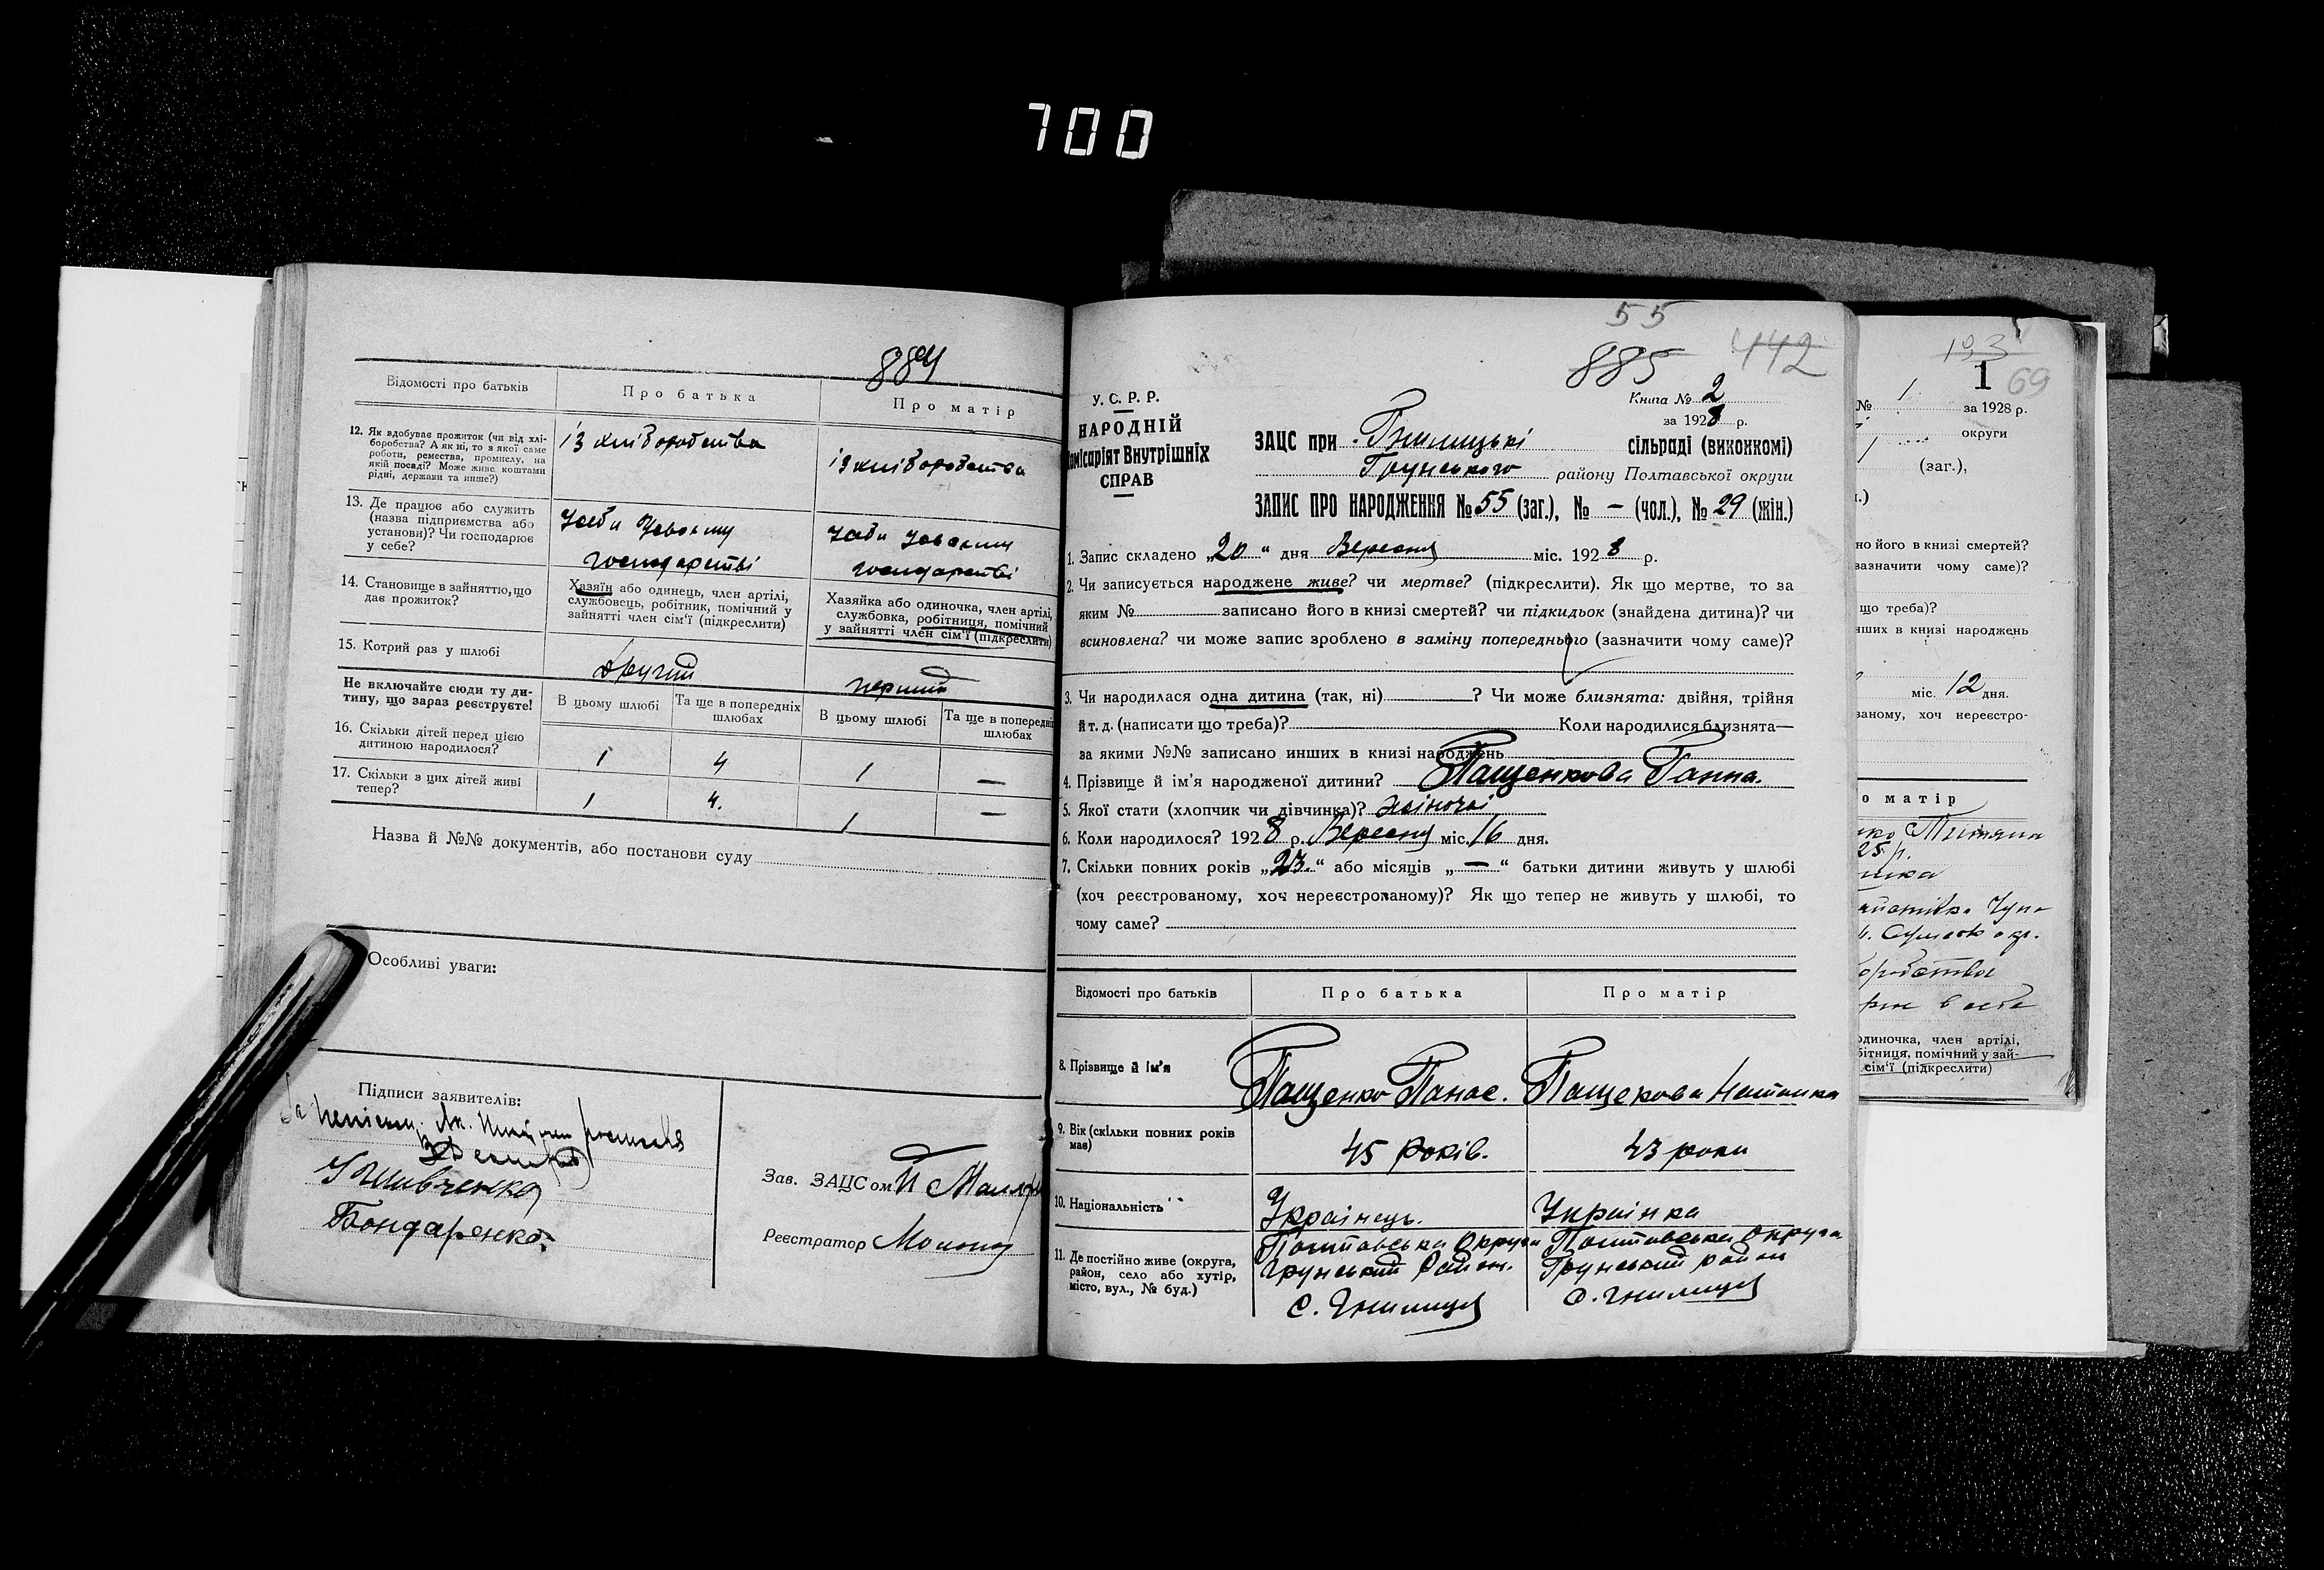 700
884
Відомості про батьків
Про батька
Про матір
12. Як вдобуває прожиток (чи від хлі-
боробства? А як ні, то з якої саме
роботи, ремества, промислу, на
якій посаді? Може живе коштами
рідні, держави та инше?)
із хліборобства
із хліборобства
13. Де працює або служить
(назва підприємства або
установи)? Чи господарює
у себе?
господарстві
господарстві
14. Становище в зайняттю, що
дає прожиток?
Хазяїн або одинець, член артілі,
службовець, робітник, помічний у
зайнятті член сім'ї (підкреслити)
Хазяйка або одиночка, член артілі,
службовка, робітниця, помічний
у зайнятті член сім'ї (підкреслити)
15. Котрий раз у шлюбі
другий
перший
Не включайте сюди ту ди-
тину, що зараз реєструєте!
В цьому шлюбі
Та ще в попередніх
шлюбах
В цьому шлюбі
Та ще в попередніх
шлюбах
16. Скільки дітей перед цією
дитиною народилося?
1 4 1 —
17. Скільки з цих дітей живі
тепер?
1 4. 1 —
Назва й №№ документів, або постанови суду
Особливі уваги:
Підписи заявителів:
Бондаренко
Зав. ЗАЦСом
Реєстратор
55
885 442
У. С. Р. Р.
НАРОДНІЙ
Комісаріят Внутрішніх
СПРАВ
Книга № 2
за 1928 р.
ЗАЦС при Гнилицькі сільраді (виконкомі)
Грунського району Полтавської округи
ЗАПИС ПРО НАРОДЖЕННЯ № 55 (заг.), № — (чол.), № 29 (жін.)
1. Запис складено „20“ дня Вересня міс. 1928 р.
2. Чи записується народжене живе? чи мертве? (підкреслити). Як що мертве, то за
яким № записано його в книзі смертей? чи підкидьок (знайдена дитина)? чи
всиновлена? чи може запис зроблено в заміну попереднього (зазначити чому саме)?
3. Чи народилася одна дитина (так, ні) ? Чи може близнята: двійня, трійня
й т. д. (написати що треба)? Коли народилися близнята—
за якими №№ записано инших в книзі народжень
4. Прізвище й ім'я народженої дитини? Пащенкова Ганна.
5. Якої стати (хлопчик чи дівчинка)? жіночої
6. Коли народилося? 1928 р. Вересня міс. 16 дня.
7. Скільки повних років „23.“ або місяців „—“ батьки дитини живуть у шлюбі
(хоч реєстрованому, хоч нереєстрованому)? Як що тепер не живуть у шлюбі, то
чому саме?
Відомості про батьків
Про батька
Про матір
8. Прізвище й ім'я
Пащенко Панас.
Пащекова Наталка
9. Вік (скільки повних років
має)
45 років.
43 роки
10. Національність
Українець.
Українка
11. Де постійно живе (округа,
район, село або хутір,
місто, вул., № буд.)
Полтавська Округа
Грунський Район.
с. Гнилиця
Полтавська округа
Грунський район
с. Гнилиця
193
1 69
№ 1. за 1928 р.
округи
(заг.),
но його в книзі смертей?
зазначити чому саме)?
що треба)?
нших в книзі народжень
міс. 12 дня.
ваному, хоч нереєстро-
о матір
25 р.
одиночка, член артілі,
бітниця, помічний у зай-
сім'ї (підкреслити)